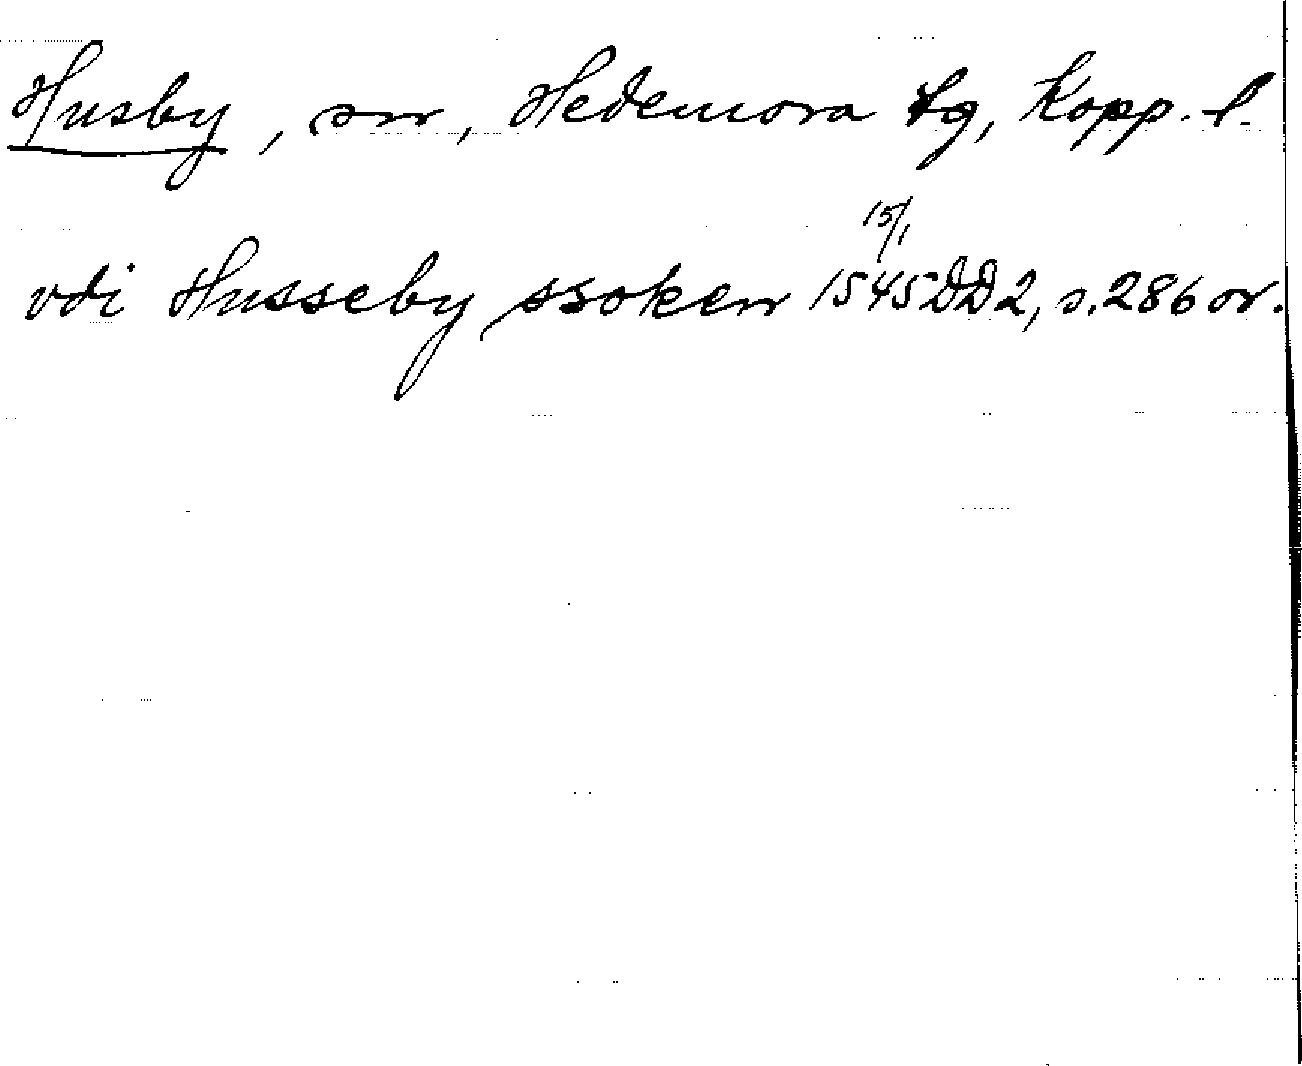 Husby, sn, Hedemora tg, Kopp. l.
15/1
vdi Husseby ssoken 1545 DD2, s. 286 or.